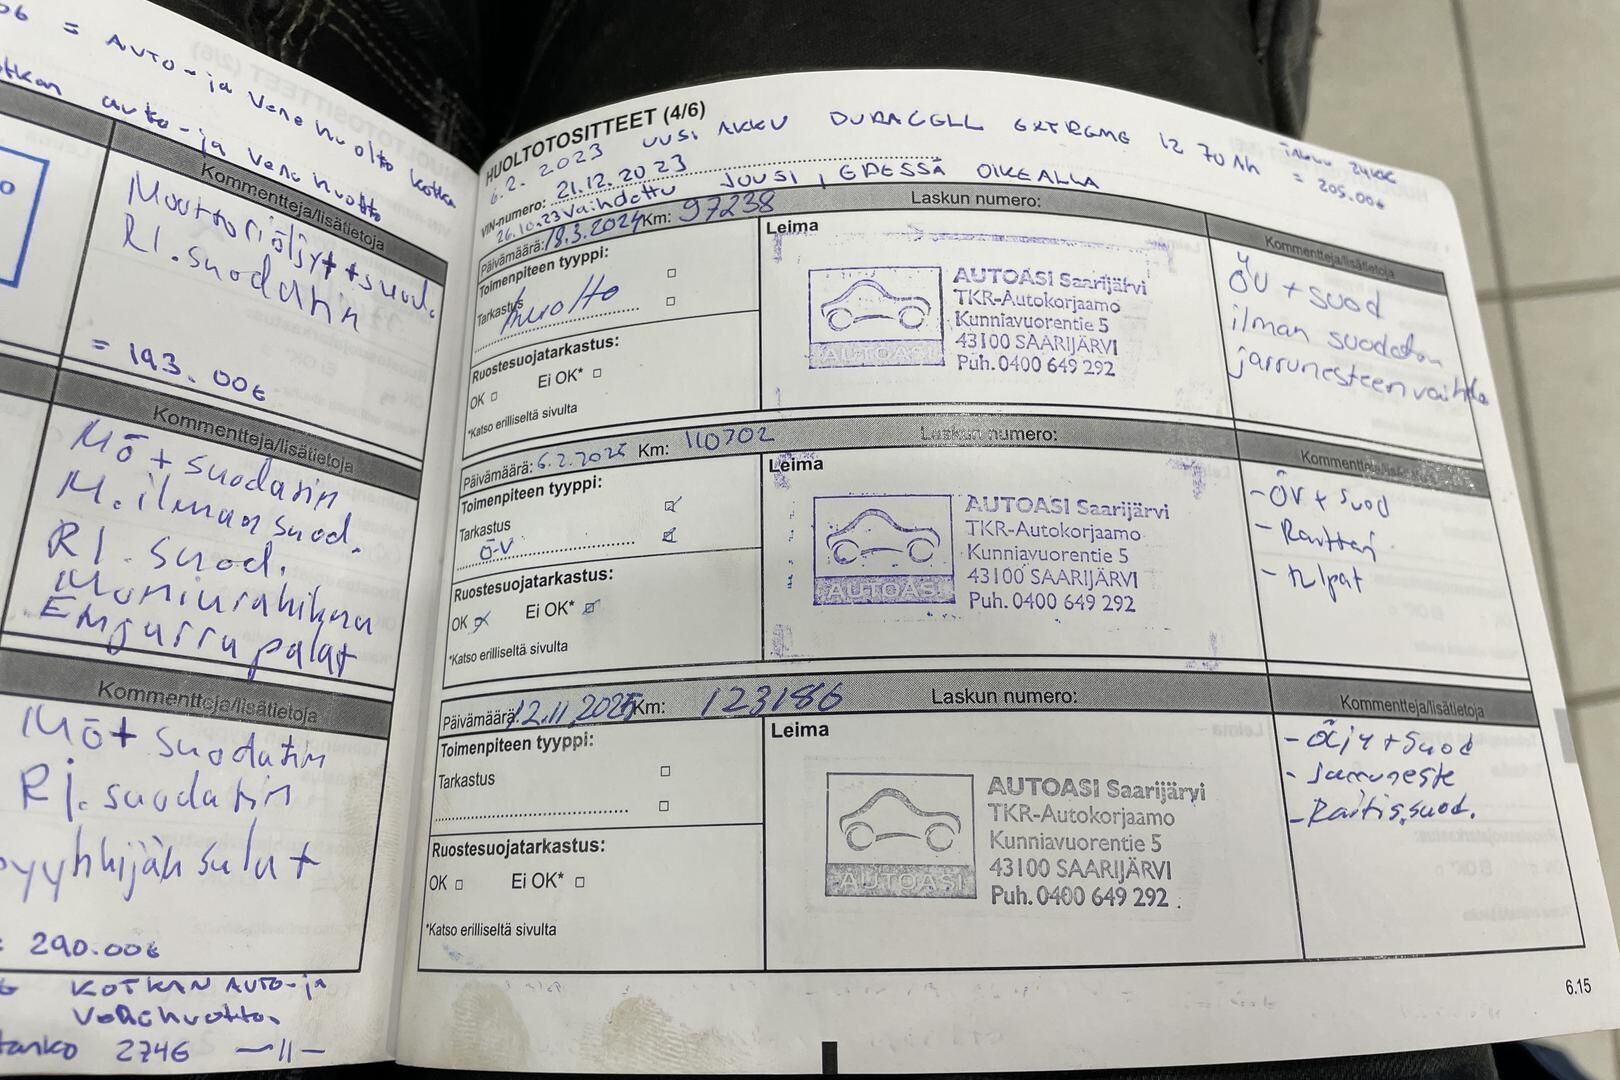 = AUTO-ja Vene huolto Kotka
auto-ja Vene huolto
Kommentteja/lisätietoja
Moottoriöljyt + suod.
RI. suodatin
= 193.00€
Kommentteja/lisätietoja
MÖ + suodatin
M. ilman suod.
RI. suod.
Moniurahihna
palat
Kommentteja/lisätietoja
MÖ + suodatin
RI. suodatin
pyyhkijän sulat
= 290.00€
KOTKAN AUTO-ja
Venehuolto
2746 —11—
HUOLTOTOSITTEET (4/6)
6.2.2023 UUSI AKKU DURACELL EXTREME 12 70Ah
= 205.00€
VIN-numero: 21.12.2023 JOUSI, EDESSÄ OIKEALLA
26.10.23 Vaihdettu
Päivämäärä: 18.3.2024 Km: 97238 Laskun numero:
Toimenpiteen tyyppi:
Tarkastus
huolto
Ruostesuojatarkastus:
OK Ei OK*
*Katso erilliseltä sivulta
Leima
AUTOASI
AUTOASI Saarijärvi
TKR-Autokorjaamo
Kunniavuorentie 5
43100 SAARIJÄRVI
Puh. 0400 649 292
Kommentteja/lisätietoja
ÖV + suod
ilman suodatin
jarrunesteen vaihto
Päivämäärä: 6.2.2025 Km: 110702 Laskun numero:
Toimenpiteen tyyppi:
Tarkastus
Ö-V
Ruostesuojatarkastus:
OK Ei OK*
*Katso erilliseltä sivulta
Leima
AUTOASI
AUTOASI Saarijärvi
TKR-Autokorjaamo
Kunniavuorentie 5
43100 SAARIJÄRVI
Puh. 0400 649 292
Kommentteja/lisätietoja
- ÖV + suod
- Raittari
- tulpat
Päivämäärä: 12.11.2025 Km: 123186 Laskun numero:
Toimenpiteen tyyppi:
Tarkastus
Ruostesuojatarkastus:
OK Ei OK*
*Katso erilliseltä sivulta
Leima
AUTOASI
AUTOASI Saarijärvi
TKR-Autokorjaamo
Kunniavuorentie 5
43100 SAARIJÄRVI
Puh. 0400 649 292
Kommentteja/lisätietoja
- Öljy + Suod
- Jarruneste
- Raitis.suod.
6.15